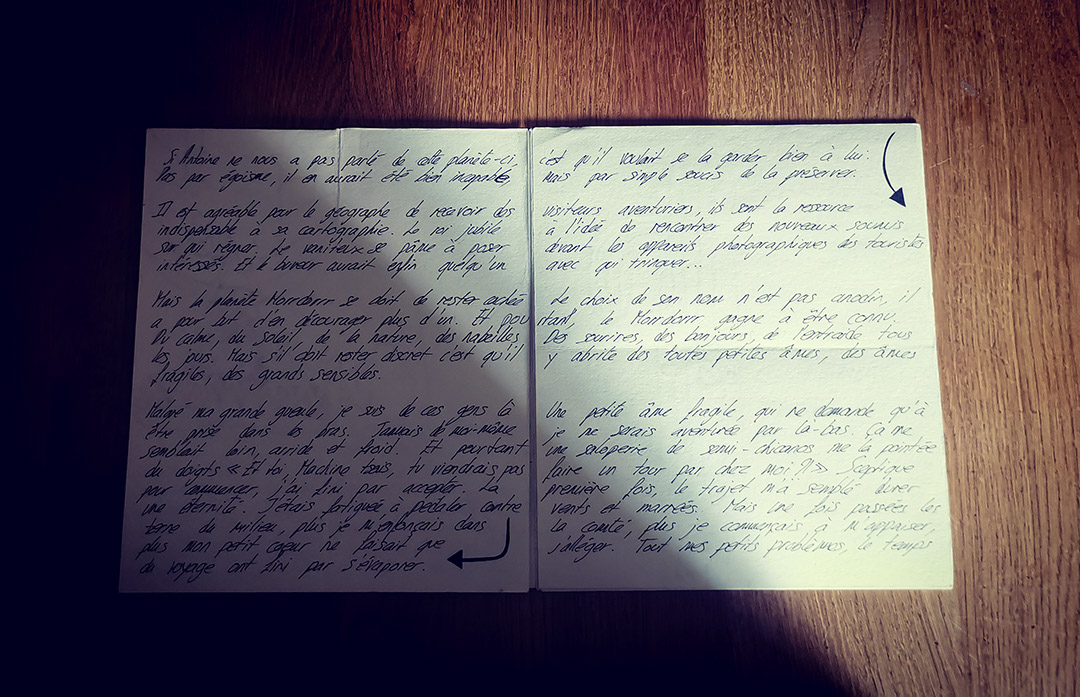 Si Antoine ne nous a pas parlé de cette planète-ci, c'est qu'il voulait se la garder bien à lui.
Pas par égoïsme, il en aurait été bien incapable, Mais par simple soucis de la préserver.
Il est agréable pour le géographe de recevoir des visiteurs aventuriers, ils sont la ressource
indispensable à sa cartographie. Le roi jubile à l'idée de rencontrer des nouveaux soumis
sur qui régner. Le vaniteux se pâme à poser devant les appareils photographiques des touristes
intéressés. Et le buveur aurait enfin quelqu'un avec qui trinquer...
Mais la planète Morrdorrr se doit de rester cachée Le choix de son nom n'est pas anodin, il
a pour but d'en décourager plus d'un. Et pourtant, le Morrdorrr gagne à être connu.
Du calme, du soleil, de la nature, des nabeilles, Des sourires, des bonjours, de l'entraide, tous
les jours. Mais s'il doit rester discret c'est qu'il y abrite des toutes petites âmes, des âmes
fragiles, des grands sensibles.
Malgré ma grande gueule, je suis de ces gens là Une petite âme fragile, qui ne demande qu'à
être prise dans les bras. Jamais de moi-même je ne serais aventurée par là-bas. Ça me
semblait loin, arride et froid. Et pourtant une saloperie de semi-chicanos me la pointée
du doigts « Et toi, Machine, tu viendrais pas faire un tour par chez moi ?! » Sceptique
pour commencer, j'ai fini par accepter. La première fois, le trajet m'a semblé durer
une éternité. J'étais fatiguée à pédaler contre vents et marrées. Mais une fois passées les
terre du milieu, plus je m'enfonçais dans la comté, plus je commençais à m'appaiser,
plus mon petit cœur ne faisait que s'alléger. Tout mes petits problèmes, le temps
du voyage ont fini par s'évaporer.